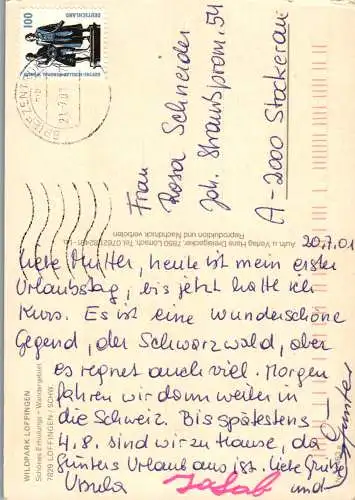 100
DEUTSCHLAND
GOETHE-SCHILLER-DENKMAL WEIMAR
BRIEFZENTRUM
21.-7.01
Frau
Rosa Schneider
Joh. Straußprom. 54
A-2000 Stockerau
Aufn. u. Verlag Hans Dreisigacker, 79850
Reproduktion und Nachdruck verboten
WILDPARK LÖFFINGEN
Schönes Erholungs- + Wandergebiet
7829 LÖFFINGEN / SCHW.
20.7.01
Liebe Mutter, heute ist mein erster
Urlaubstag, bis jetzt hatte ich
Kurs. Es ist eine wunderschöne
Gegend, der Schwarzwald, aber
es regnet auch viel. Morgen
fahren wir dann weiter in
die Schweiz. Bis spätestens
4.8. sind wir zu Hause, da
Günters Urlaub aus ist. Liebe Grüße
Ursula und
Günter